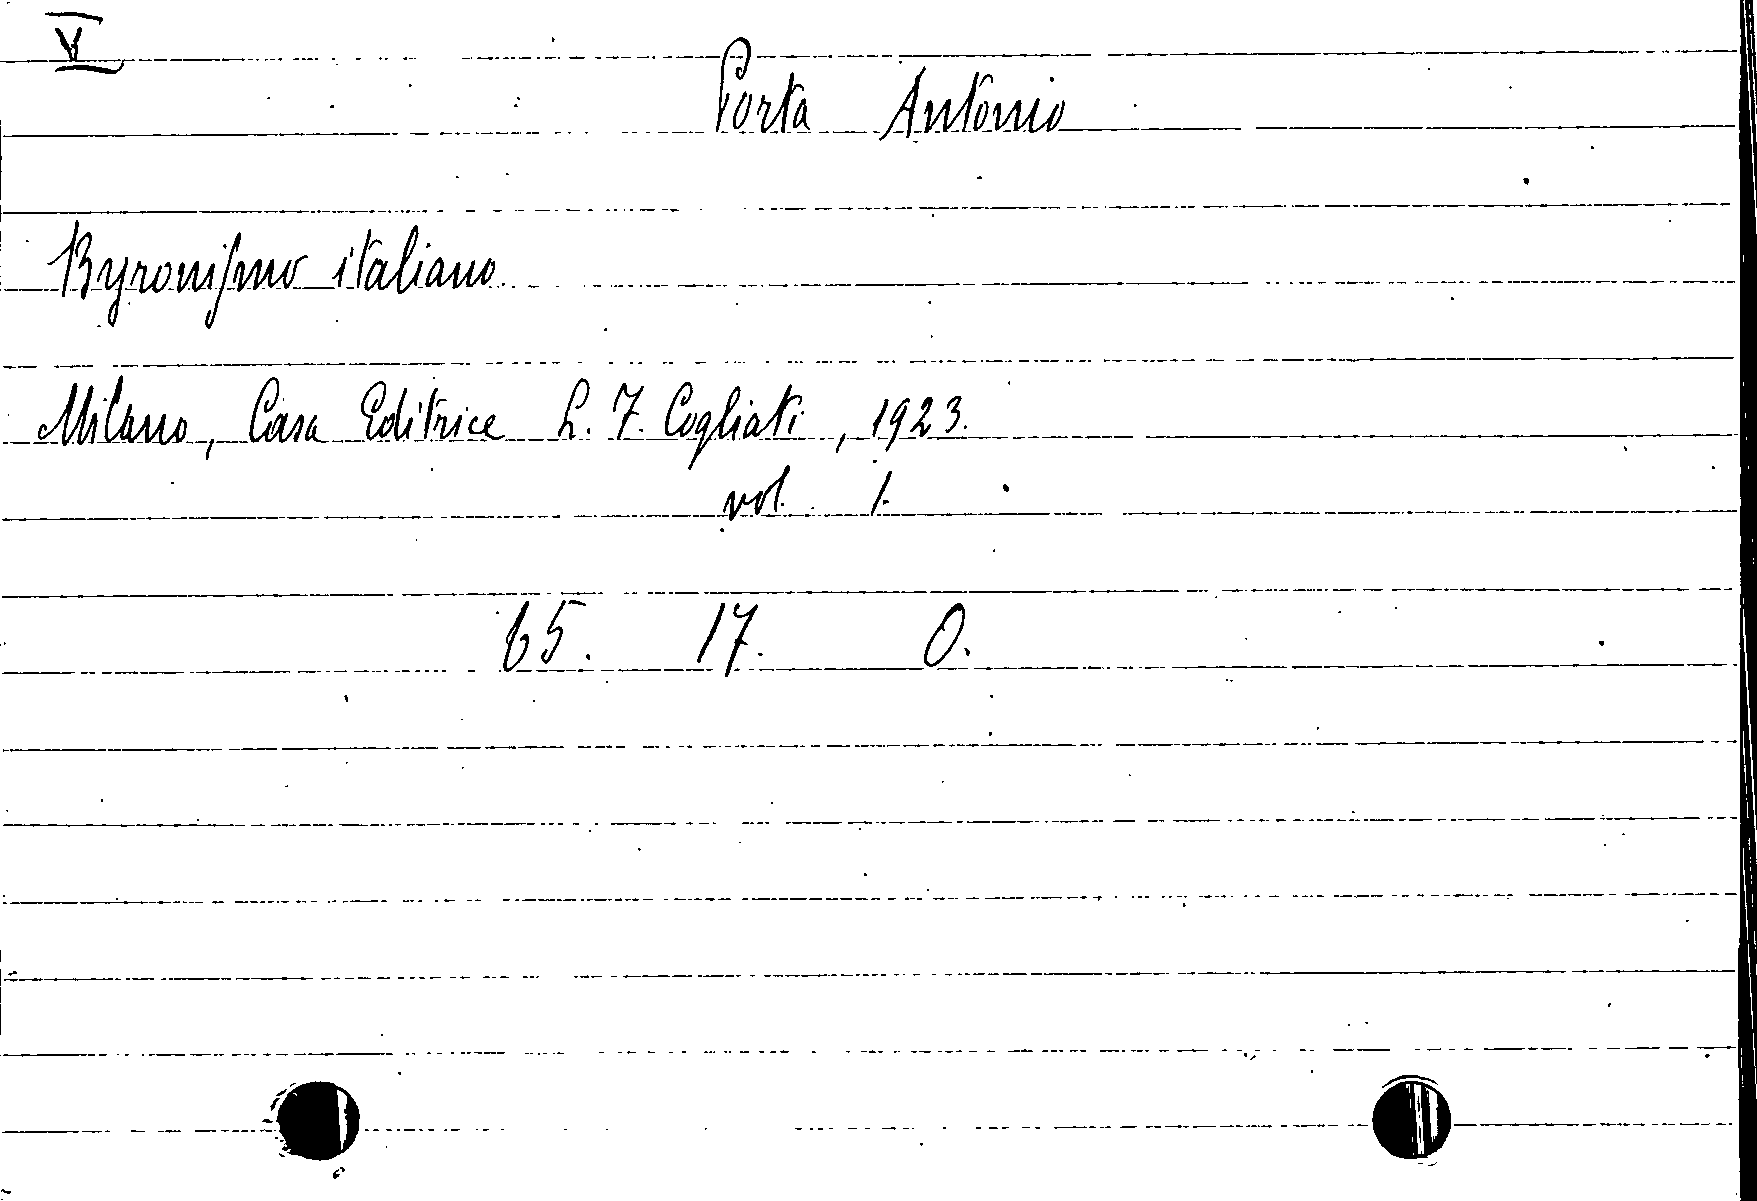 V
Porta Antonio
Byronismo italiano
Milano, Casa Editrice L. F. Cogliati, 1923.
vol. 1.
65. 17. O.